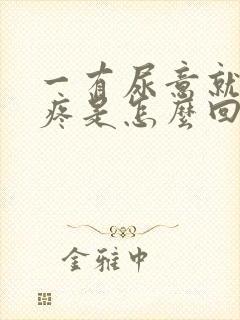 一有尿意就
疼是怎麽回
金雅中